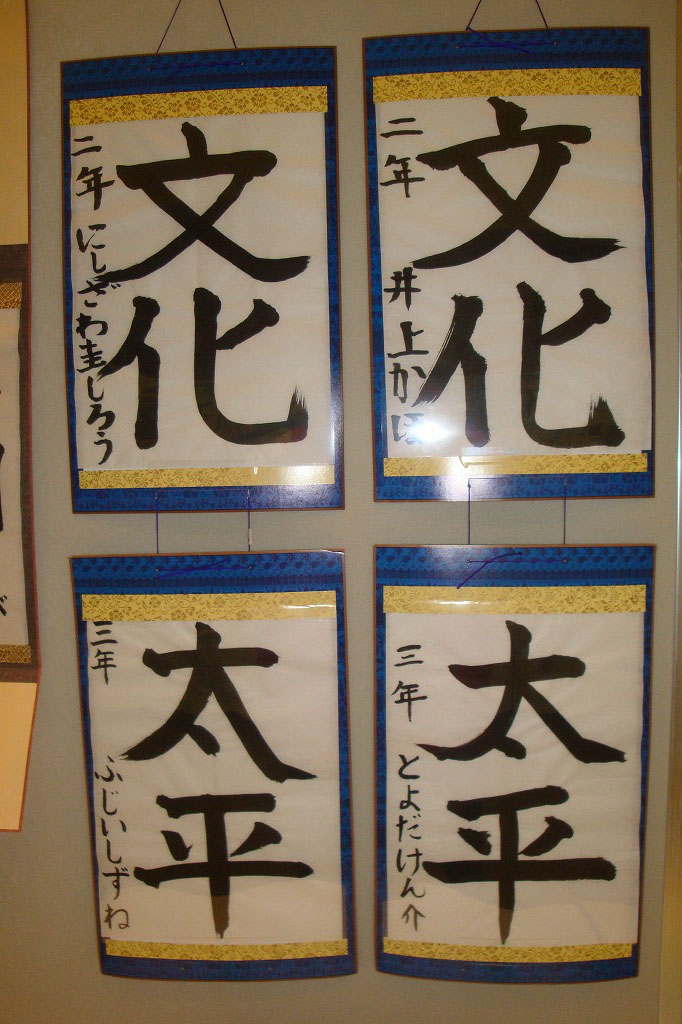 文化
二年 井上かほ
文化
二年 にしざわ圭しろう
太平
三年 とよだけん介
太平
三年 ふじいしずね